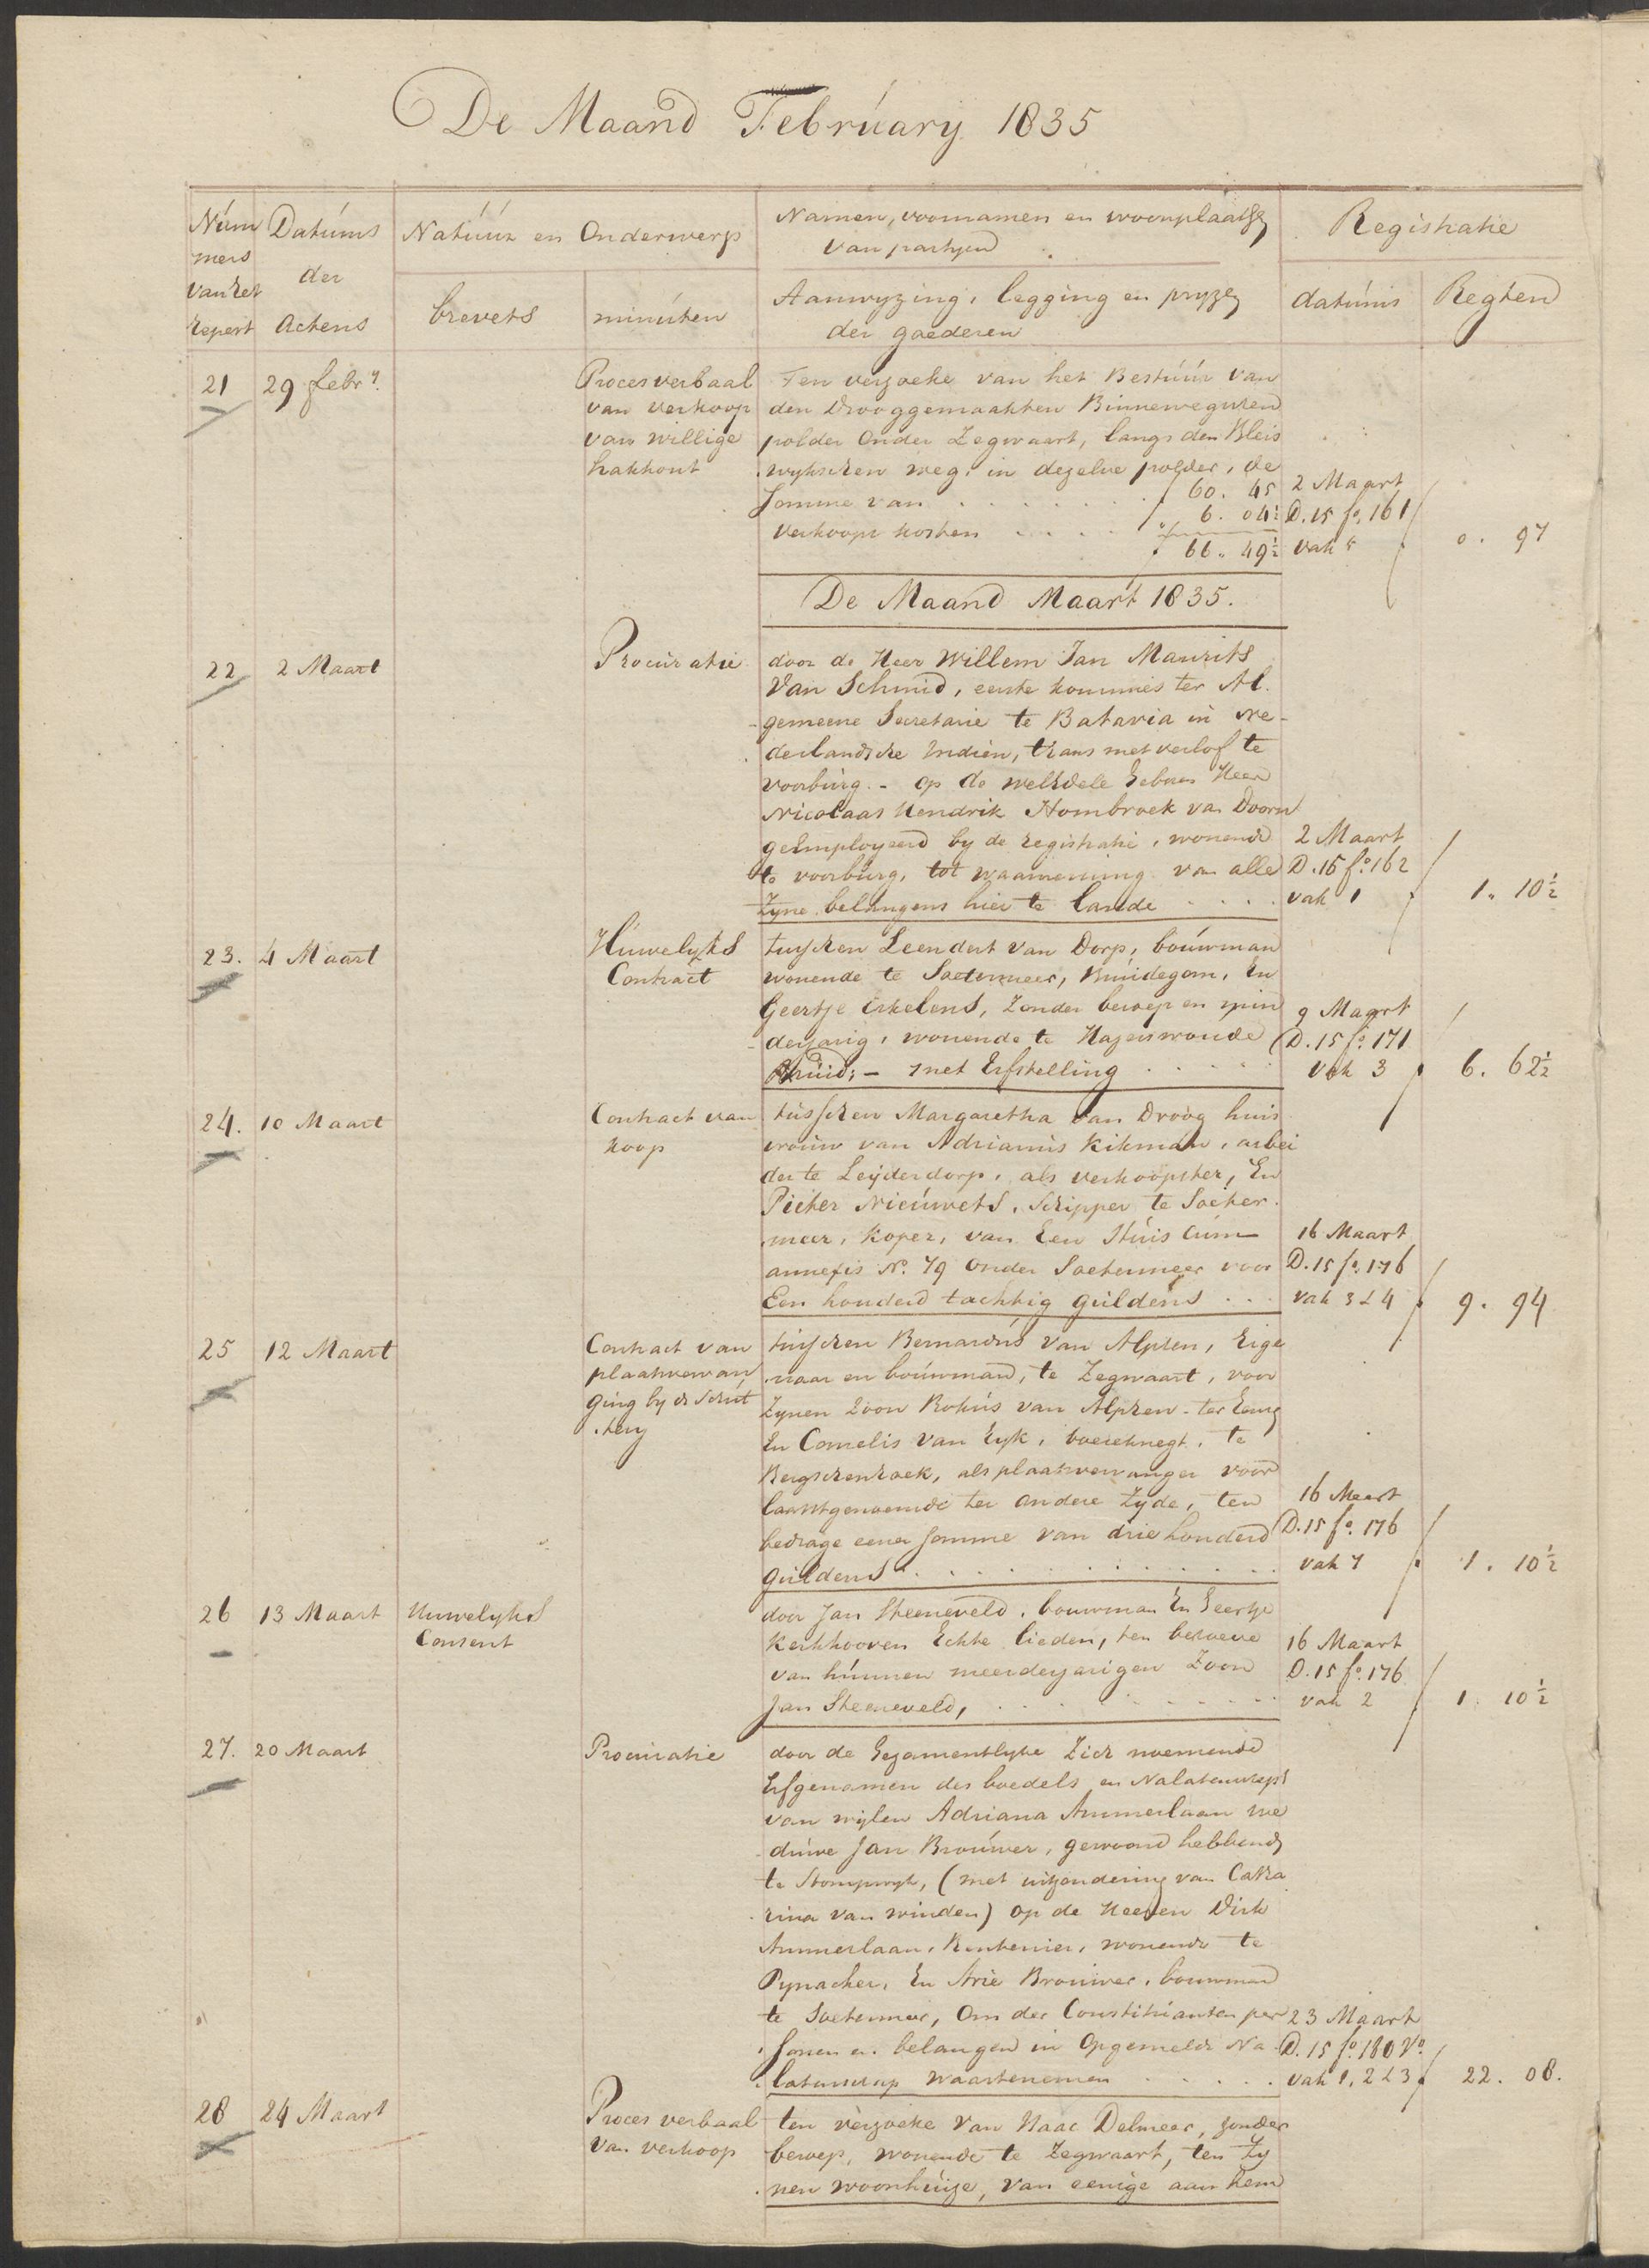 De Maand February 1835
Num
mers
van het
repert
Datums
der
Actens
Natuur en Onderwerp
brevets
minuten
Namen, voornamen en woonplaatsen
van partyen
Aanwyzing, legging en pryzen
der goederen
Registratie
datums
Regten
21 29 febry.
Proces verbaal
van verkoop
van willige
hakhout
Ten verzoeke van het Bestuur van
den Drooggemaakten Binnenwegschen
polder onder Zegwaart, langs den Bleis
wykschen weg, in dezelve polder, de
Somme van . . . . . ƒ 60. 45
verkoops kosten . . . . 6. 04½
ƒ 66. 49½
2 Maart
D. 15 fo. 161
vak 5
0. 97
De Maand Maart 1835.
22 2 Maart
Procuratie
door de Heer Willem Jan Maurits
van Schmid, eerste kommies ter Al
gemeene Secretarie te Batavia in Ne-
derlandsche Indiën, thans met verlof te
voorburg. - op de welEdele Geboren Heer
Nicolaas Hendrik Hombroek van Doorn
geëmployeerd by de registratie, wonende
te voorburg, tot waarneming van alle
Zyne belangens hier te lande . . . .
2 Maart
D. 15 fo. 162
vak 1
1. 10½
23. 4 Maart
Huwelyks
Contract
tusschen Leendert van Dorp, bouwman
wonende te Soetermeer, Bruidegom, En
Geertje Erkelens, Zonder beroep en min
derjarig, wonende te Hazerswoude
Bruid; - met Erfstelling . . . . .
9 Maart
D. 15 fo. 171
vak 3
6. 62½
24. 10 Maart
Contract van
koop
tusschen Margaretha van Droog huis
vrouw van Adrianus Kikman, arbei
der te Leyderdorp, als verkoopster, En
Pieter Nieuwets, Schipper te Soeter
meer, Koper, van Een Huis Cum
annexis No. 79 onder Soetermeer voor
Een honderd tachtig guldens . . .
16 Maart
D. 15 fo. 176
vak 3 & 4
9. 94
25 12 Maart
Contract van
plaatsvervan
ging by de Schut
tery
tusschen Bernardus van Alphen, Eige
naar en bouwman, te Zegwaart, voor
Zynen Zoon Rokus van Alphen - ter Eenre
En Cornelis van Eyk, boereknegt, te
Bergschenhoek, als plaatsvervanger voor
laastgenoemde ter andere zyde, ten
bedrage eener Somme van drie honderd
Guldens . . . . . . . . . . .
16 Maart
D. 15 fo. 176
vak 7
1. 10½
26 13 Maart
Huwelyks
Consent
door Jan Steeneveld, bouwman En Geertje
Kerkhooven Echte lieden, ten behoeve
van hunnen meerderjarigen Zoon
Jan Steeneveld, . . . . . . . .
16 Maart
D. 15 fo. 176
vak 2
1. 10½
27. 20 Maart
Procuratie
door de Gezamentlyke Zich noemende
Erfgenamen des boedels en Nalatenschap
van wylen Adriana Ammerlaan we
duwe Jan Brouwer, gewoond hebbende
te Stompwyk, (met uitzondering van Catha
rina van winden) op de Heeren Dirk
Ammerlaan, Rentenier, wonende te
Pynacker, En Arie Brouwer, bouwman
te Soetermeer, Om der Constituanten per
sonen en belangen in Opgemelde Na
latenschap waartenemen . . . . .
23 Maart
D. 15 fo. 180 Vo.
vak 1, 2 & 3
22. 08.
28 24 Maart
Proces verbaal
van verkoop
ten verzoeke van Isaac Delmeer, zonder
beroep, wonende te Zegwaart, ten Zy
nen woonhuize, van eenige aan hem